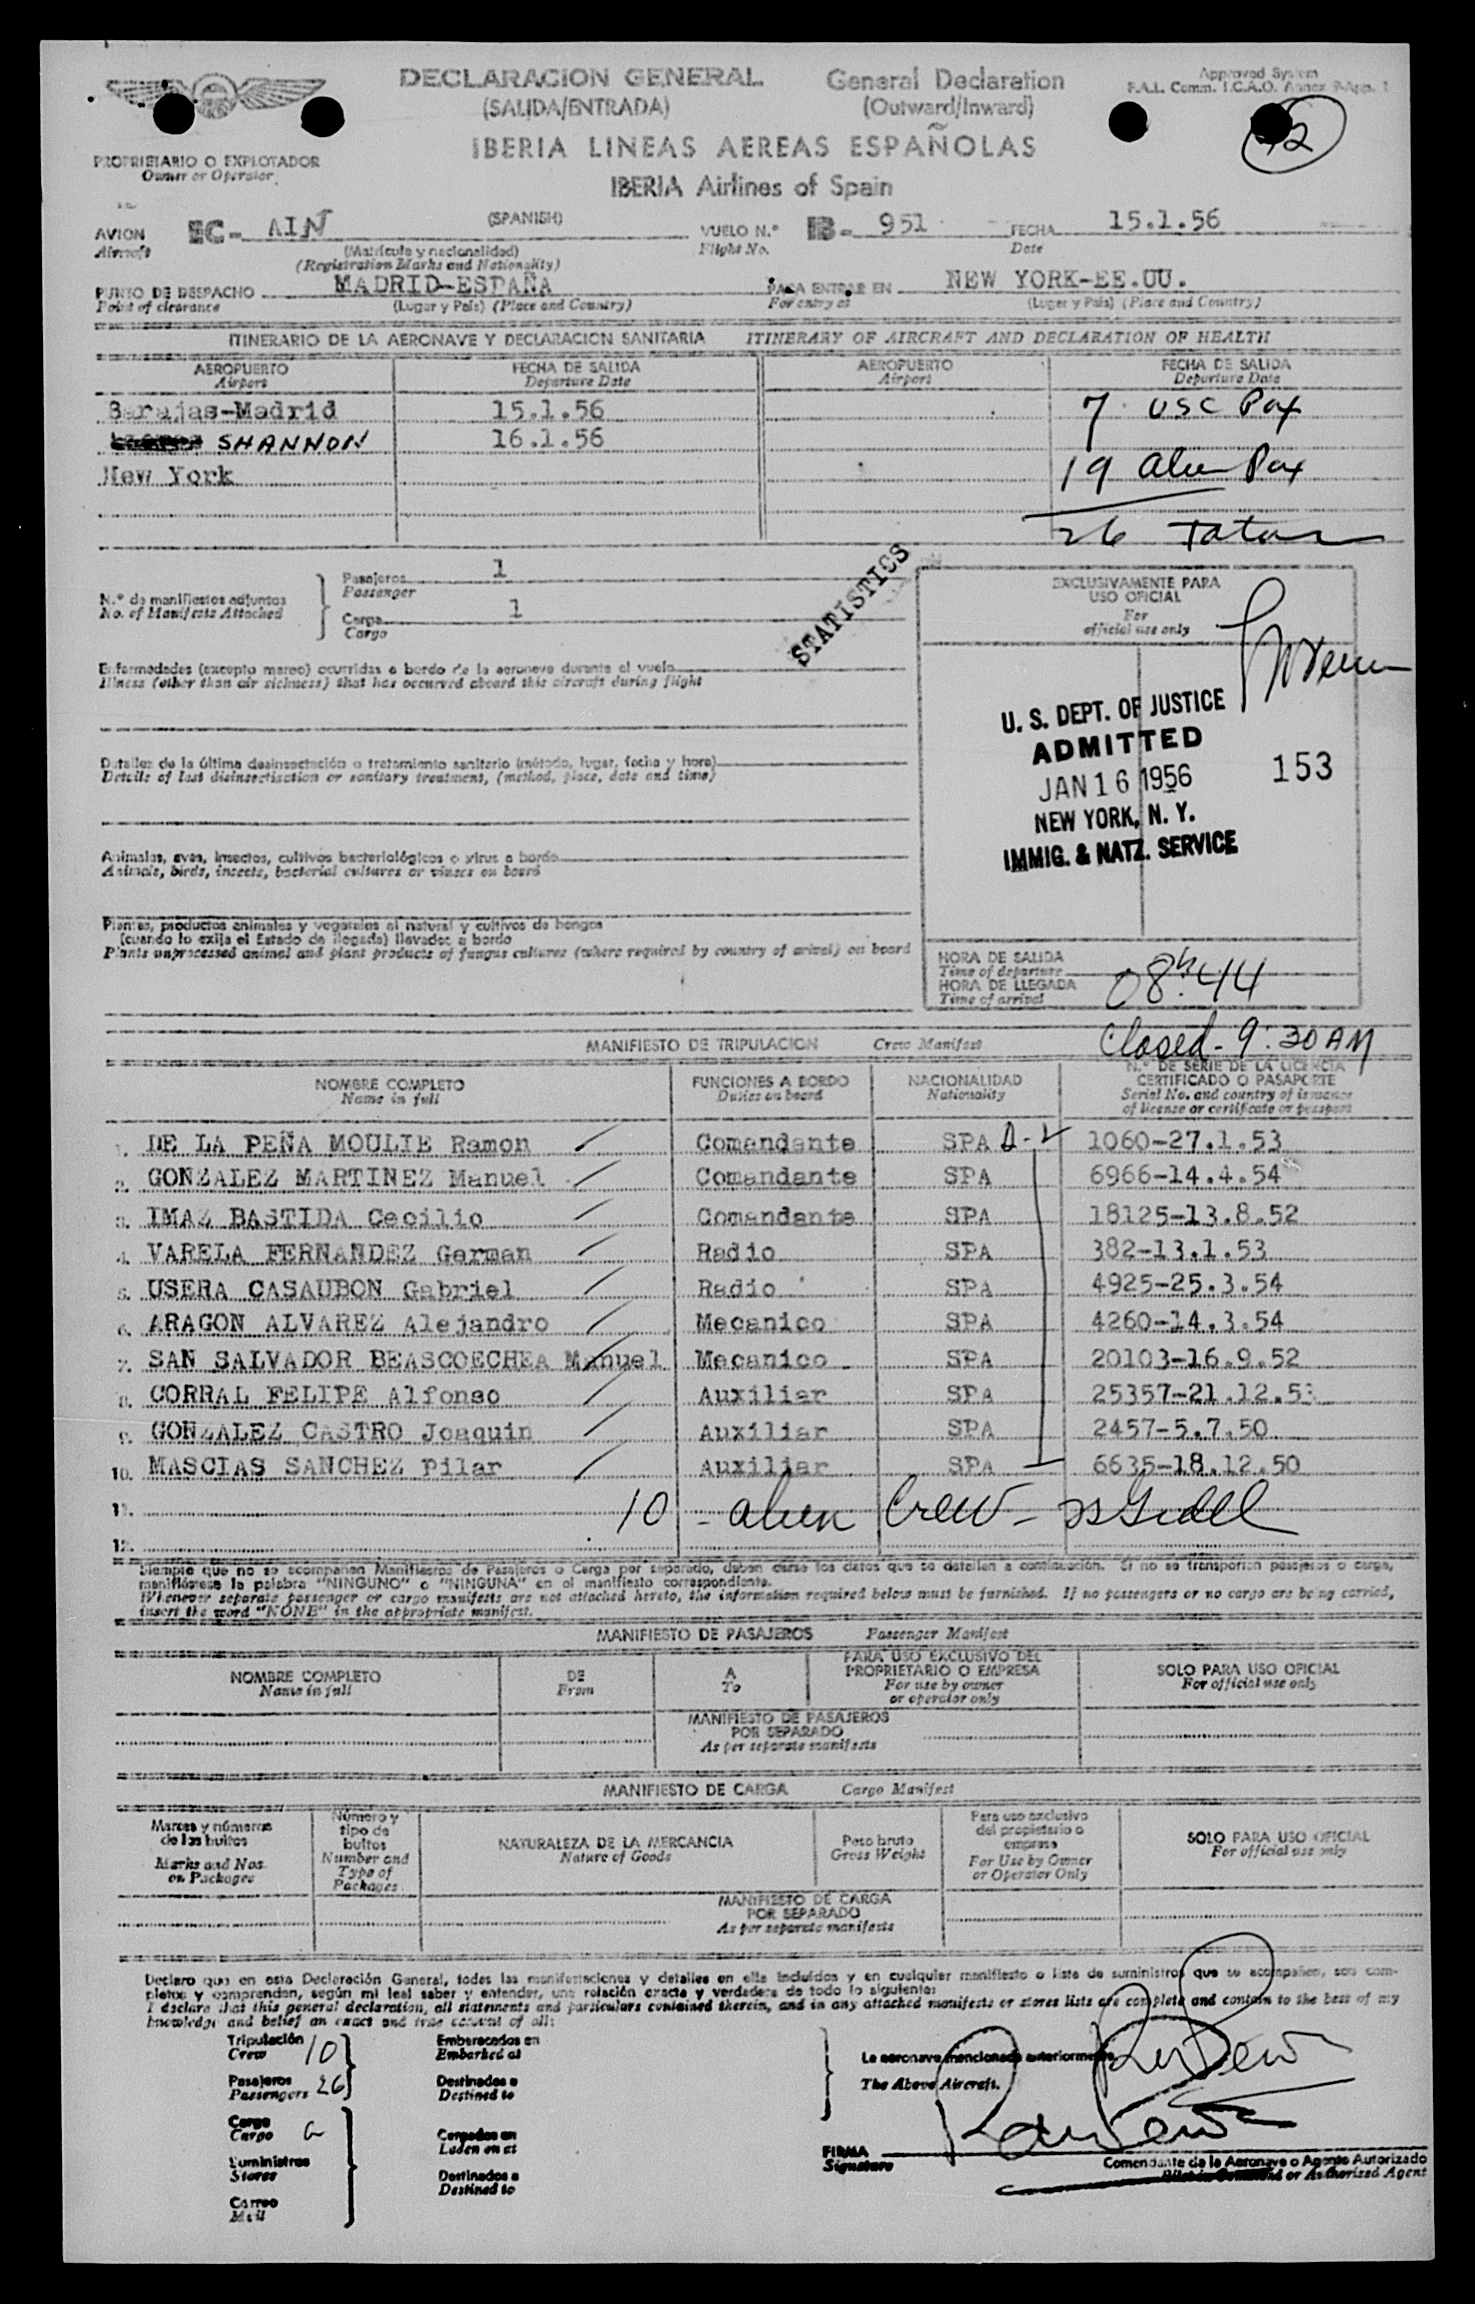 DECLARACION GENERAL General Declaration
(SALIDA/ENTRADA) (Outward/Inward)
Approved System
F.A.L. Comm. I.C.A.O. Annex 9-App. 1
IBERIA LINEAS AEREAS ESPAÑOLAS
IBERIA Airlines of Spain
PROPRIETARIO O EXPLOTADOR
Owner or Operator
AVION EC- AIN (SPANISH) VUELO N.° IB- 951 FECHA 15.1.56
Aircraft (Matrícula y nacionalidad) Flight No. Date
(Registration Marks and Nationality)
PUNTO DE DESPACHO MADRID-ESPAÑA PARA ENTRAR EN NEW YORK-EE.UU.
Point of clearance (Lugar y País) (Place and Country) For entry at (Lugar y País) (Place and Country)
ITINERARIO DE LA AERONAVE Y DECLARACION SANITARIA ITINERARY OF AIRCRAFT AND DECLARATION OF HEALTH
AEROPUERTO FECHA DE SALIDA AEROPUERTO FECHA DE SALIDA
Airport Departure Date Airport Departure Date
Barajas-Madrid 15.1.56 7 USC Pax
SHANNON 16.1.56
New York 19 alien Pax
26 Total
STATISTICS
N.° de manifiestos adjuntos
No. of Manifests Attached
Pasajeros 1
Passenger
Carga 1
Cargo
EXCLUSIVAMENTE PARA
USO OFICIAL
For
official use only
Enfermedades (excepto mareo) ocurridas a bordo de la aeronave durante el vuelo
Illness (other than air sickness) that has occurved aboard this aircraft during flight
U. S. DEPT. OF JUSTICE
ADMITTED
JAN 16 1956 153
NEW YORK, N. Y.
IMMIG. & NATZ. SERVICE
Detalles de la última desinsectación o tratamiento sanitario (método, lugar, fecha y hora)
Details of last disinsectisation or sanitary treatment, (method, place, date and time)
Animales, aves, insectos, cultivos bacteriológicos o virus a bordo
Animals, birds, insects, bacterial cultures or viuses on board
Plantas, productos animales y vegetales al natural y cultivos de hongos
(cuando lo exija el Estado de llegada) llevados a bordo
Plants unprocessed animal and plant products of fungus cultures (where required by country of arival) on board
HORA DE SALIDA
Time of departure
HORA DE LLEGADA 08h:44
Time of arrival
Closed - 9:30 AM
MANIFIESTO DE TRIPULACION Crew Manifest
NOMBRE COMPLETO FUNCIONES A BORDO NACIONALIDAD N.° DE SERIE DE LA LICENCIA
Name in full Duties on board Nationality CERTIFICADO O PASAPORTE
Serial No. and country of issuance
of license or certificate or passport
1. DE LA PEÑA MOULIE Ramon Comandante SPA D-2 1060-27.1.53
2. GONZALEZ MARTINEZ Manuel Comandante SPA 6966-14.4.54
3. IMAZ BASTIDA Cecilio Comandante SPA 18125-13.8.52
4. VARELA FERNANDEZ German Radio SPA 382-13.1.53
5. USERA CASAUBON Gabriel Radio SPA 4925-25.3.54
6. ARAGON ALVAREZ Alejandro Mecanico SPA 4260-14.3.54
7. SAN SALVADOR BEASCOECHEA Manuel Mecanico SPA 20103-16.9.52
8. CORRAL FELIPE Alfonso Auxiliar SPA 25357-21.12.53
9. GONZALEZ CASTRO Joaquin Auxiliar SPA 2457-5.7.50
10. MASCIAS SANCHEZ Pilar Auxiliar SPA 6635-18.12.50
11. 10 - alien Crew -
12.
Siempre que no se acompañen Manifiestos de Pasajeros o Carga por separado, deben darse los datos que se detallan a continuación. Si no se transportan pasajeros o carga,
manifiéstese la palabra "NINGUNO" o "NINGUNA" en el manifiesto correspondiente.
Whenever separate passenger or cargo manifests are not attached hereto, the information required below must be furnished. If no passengers or no cargo are being carried,
insert the word "NONE" in the appropriate manifest.
MANIFIESTO DE PASAJEROS Passenger Manifest
NOMBRE COMPLETO DE A PARA USO EXCLUSIVO DEL SOLO PARA USO OFICIAL
Name in full From To PROPRIETARIO O EMPRESA For official use only
For use by owner
or operator only
MANIFIESTO DE PASAJEROS
POR SEPARADO
As per separate manifests
MANIFIESTO DE CARGA Cargo Manifest
Marcas y números
de los bultos
Marks and Nos.
on Packages
Número y
tipo de
bultos
Number and
Type of
Packages
NATURALEZA DE LA MERCANCIA
Nature of Goods
Peso bruto
Gross Weight
Para uso exclusivo
del propietario o
empresa
For Use by Owner
or Operator Only
SOLO PARA USO OFICIAL
For official use only
MANIFIESTO DE CARGA
POR SEPARADO
As per separate manifests
Declaro que en esta Declaración General, todas las manifestaciones y detalles en ella incluidos y en cualquier manifiesto o lista de suministros que se acompañen, son com-
pletos y comprenden, según mi leal saber y entender, una relación exacta y verdadera de todo lo siguiente:
I declare that this general declaration, all statements and particulars contained therein, and in any attached manifests or stores lists are complete and contain to the best of my
knowledge and belief an exact and true account of all:
Tripulación Embarcados en
Crew 10 Embarked at
Pasajeros Destinados a
Passengers 26 Destined to
La aeronave mencionada anteriormente
The Above Aircraft.
Carga Cargados en
Cargo Laden on at
Suministros
Stores
Destinados a
Destined to
Correo
Mail
FIRMA
Signature
Comandante de la Aeronave o Agente Autorizado
or Authorized Agent